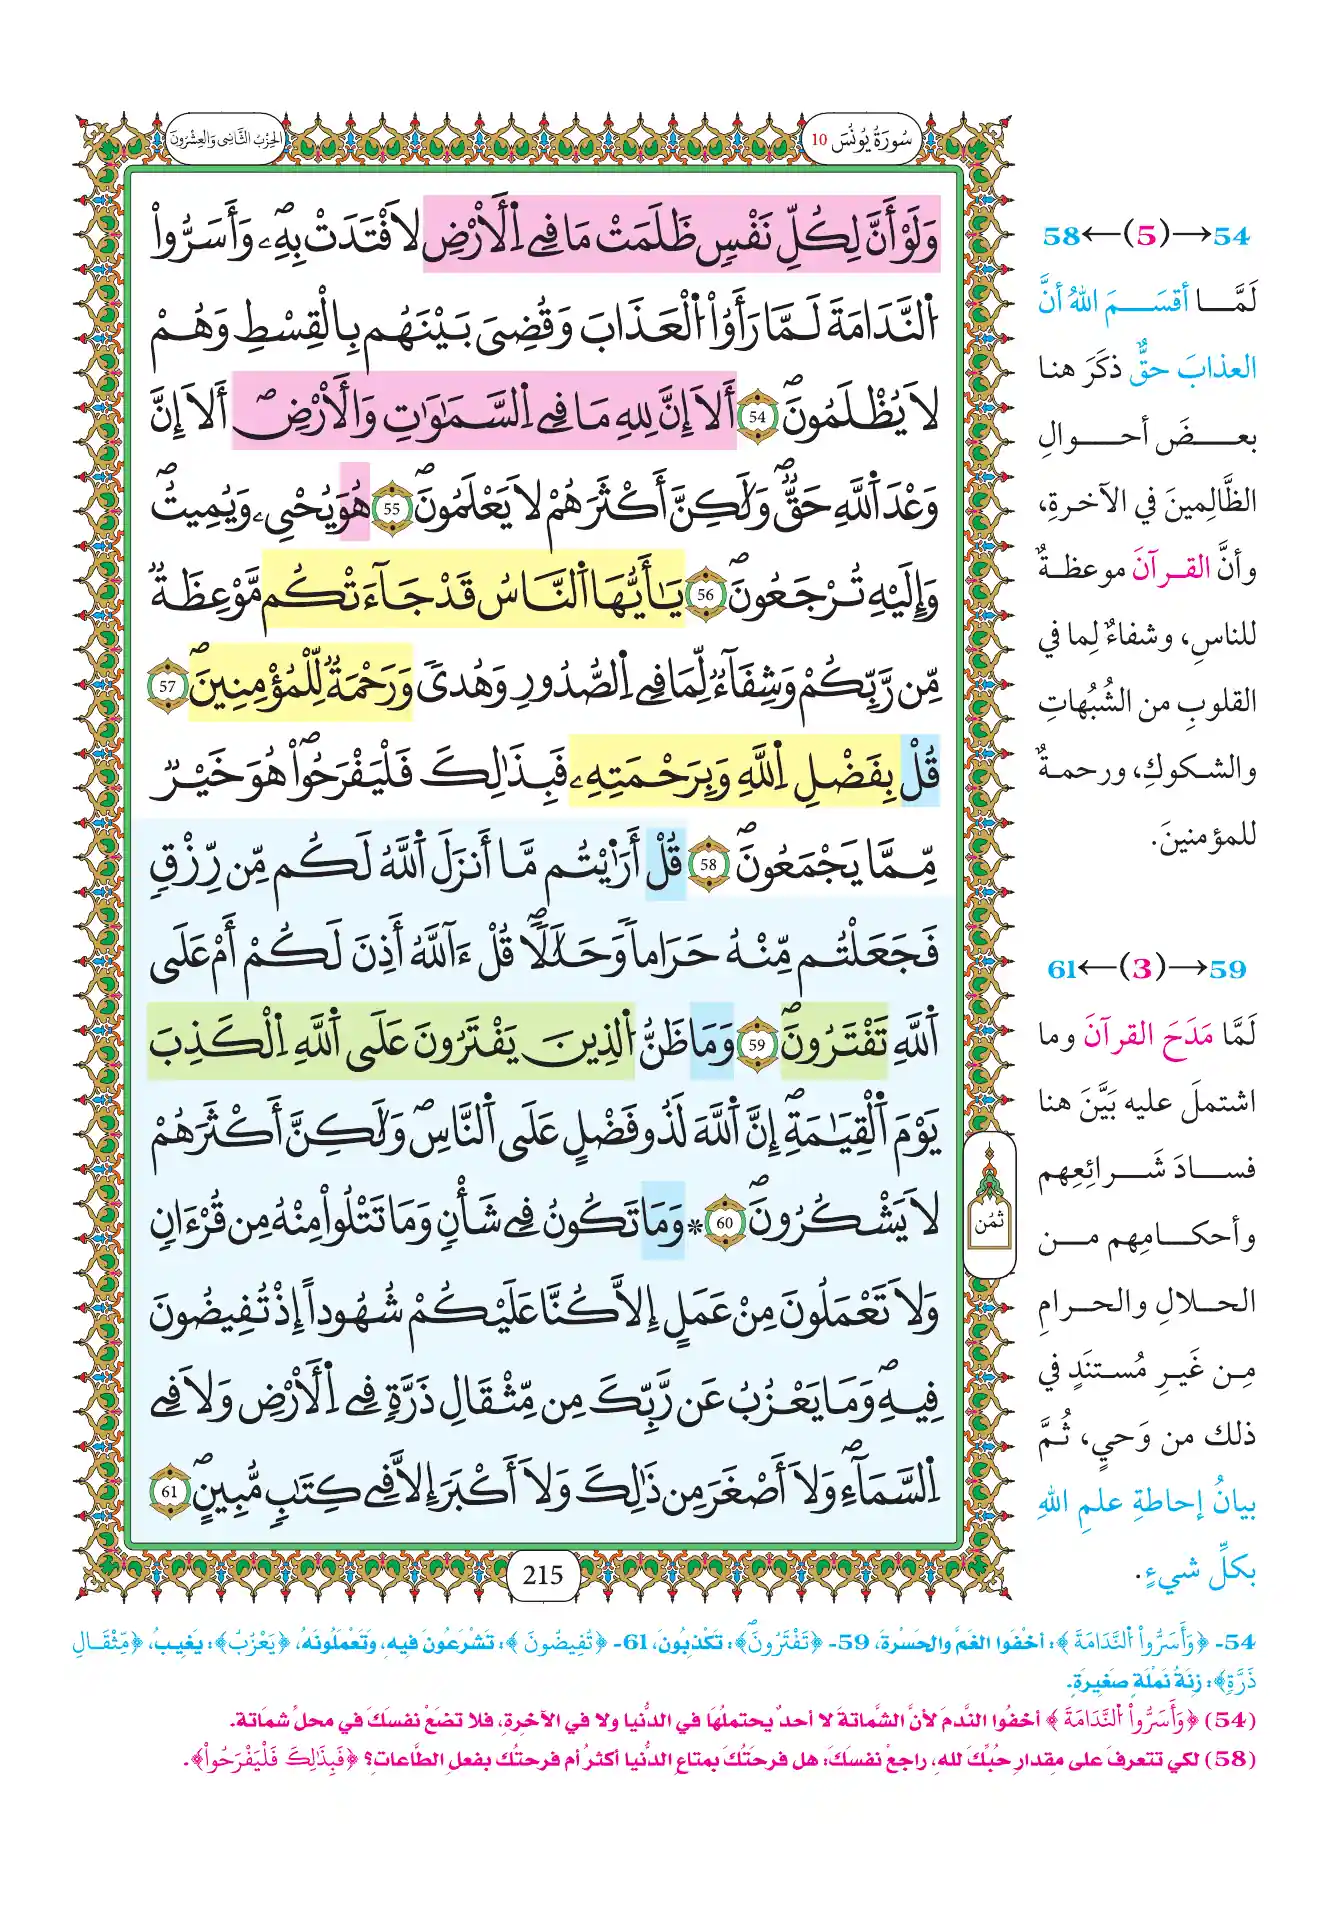 سُورَةُ يُونُسَ 10
الحِزْبُ الثَّانِي وَالعِشْرُونَ
وَلَوْ أَنَّ لِكُلِّ نَفْسٖ ظَلَمَتْ مَا فِے اِ۬لَارْضِ لَافْتَدَتْ بِهِۦۖ وَأَسَرُّواْ
اُ۬لنَّدَامَةَ لَمَّا رَأَوُاْ اُ۬لْعَذَابَ وَقُضِيَ بَيْنَهُم بِالْقِسْطِ وَهُمْ
لَا يُظْلَمُونَۖ 54 أَلَا إِنَّ لِلهِ مَا فِے اِ۬لسَّمَٰوَٰتِ وَالَارْضِۖ أَلَا إِنَّ
وَعْدَ اَ۬للَّهِ حَقّٞۖ وَلَٰكِنَّ أَكْثَرَهُمْ لَا يَعْلَمُونَۖ 55 هُوَ يُحْيِۦ وَيُمِيتُۖ
وَإِلَيْهِ تُرْجَعُونَۖ 56 يَٰأَيُّهَا اَ۬لنَّاسُ قَدْ جَآءَتْكُم مَّوْعِظَةٞ
مِّن رَّبِّكُمْ وَشِفَآءٞ لِّمَا فِے اِ۬لصُّدُورِ وَهُدىٗ وَرَحْمَةٞ لِّلْمُؤْمِنِينَۖ 57
قُلْ بِفَضْلِ اِ۬للَّهِ وَبِرَحْمَتِهِۦ فَبِذَٰلِكَ فَلْيَفْرَحُواْۖ هُوَ خَيْرٞ
مِّمَّا يَجْمَعُونَۖ 58 قُلْ أَرَٰيْتُم مَّا أَنزَلَ اَ۬للَّهُ لَكُم مِّن رِّزْقٖ
فَجَعَلْتُم مِّنْهُ حَرَاماٗ وَحَلَٰلاٗۖ قُلْ ءَآللَّهُ أَذِنَ لَكُمْ أَمْ عَلَى
اَ۬للَّهِ تَفْتَرُونَۖ 59 وَمَا ظَنُّ اُ۬لذِينَ يَفْتَرُونَ عَلَى اَ۬للَّهِ اِ۬لْكَذِبَ
يَوْمَ اَ۬لْقِيَٰمَةِۖ إِنَّ اَ۬للَّهَ لَذُو فَضْلٍ عَلَى اَ۬لنَّاسِۖ وَلَٰكِنَّ أَكْثَرَهُمْ
لَا يَشْكُرُونَۖ 60 * وَمَا تَكُونُ فِے شَأْنٖ وَمَا تَتْلُواْ مِنْهُ مِن قُرْءَانٖ
وَلَا تَعْمَلُونَ مِنْ عَمَلٍ إِلَّا كُنَّا عَلَيْكُمْ شُهُوداً إِذْ تُفِيضُونَ
فِيهِۖ وَمَا يَعْزُبُ عَن رَّبِّكَ مِن مِّثْقَالِ ذَرَّةٖ فِے اِ۬لَارْضِ وَلَا فِے
اِ۬لسَّمَآءِۖ وَلَا أَصْغَرَ مِن ذَٰلِكَ وَلَا أَكْبَرَ إِلَّا فِے كِتَٰبٖ مُّبِينٍۖ 61
ثمن
215
54→(5)←58
لَمَّا أقسَمَ اللهُ أنَّ
العذابَ حقٌّ ذكَرَ هنا
بعضَ أحوالِ
الظَّالِمينَ في الآخرةِ،
وأنَّ القرآنَ موعظةٌ
للناسِ، وشفاءٌ لِما في
القلوبِ من الشُبُهاتِ
والشكوكِ، ورحمةٌ
للمؤمنينَ.
59→(3)←61
لَمَّا مَدَحَ القرآنَ وما
اشتملَ عليه بَيَّنَ هنا
فسادَ شَرائِعِهم
وأحكامِهم من
الحلالِ والحرامِ
مِن غَيرِ مُستنَدٍ في
ذلك من وَحيٍ، ثُمَّ
بيانُ إحاطةِ علمِ اللهِ
بكلِّ شيءٍ.
54- ﴿وَأَسَرُّواْ اُ۬لنَّدَامَةَ﴾: أخْفَوا الغَمَّ والحَسْرةَ، 59- ﴿تَفْتَرُونَۖ﴾: تَكْذِبُونَ، 61- ﴿تُفِيضُونَ﴾: تَشْرَعُونَ فيهِ، وتَعْمَلُونَهُ، ﴿يَعْزُبُ﴾: يَغِيبُ، ﴿مِّثْقَالِ
ذَرَّةٖ﴾: زِنَةُ نَمْلَةٍ صغيرةٍ.
(54) ﴿وَأَسَرُّواْ اُ۬لنَّدَامَةَ﴾ أخفُوا النَّدمَ لأنَّ الشَّماتةَ لا أحدٌ يحتملُهَا في الدُّنيا ولا في الآخرةِ، فلا تضَعْ نفسَكَ في محلِّ شماتة.
(58) لكي تتعرفَ على مقدارِ حُبِّكَ للهِ، راجعْ نفسَكَ: هل فرحَتُكَ بمتاعِ الدُّنيا أكثرُ أم فرحتُكَ بفعلِ الطَّاعات؟ ﴿فَبِذَٰلِكَ فَلْيَفْرَحُواْ﴾.